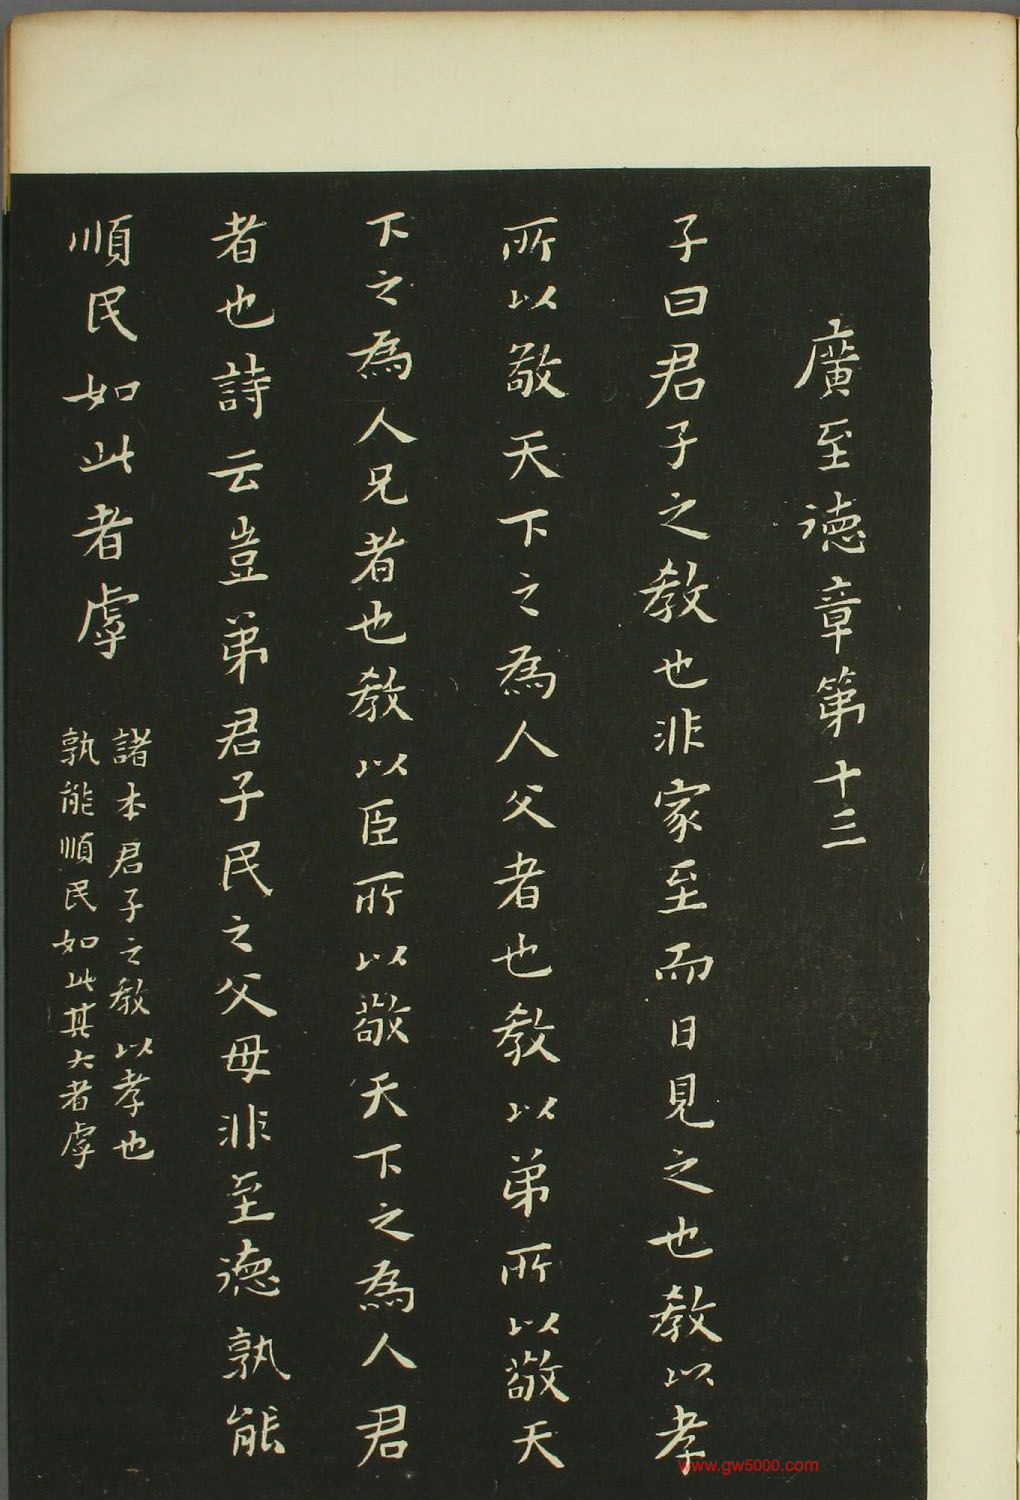 廣至德章第十三
子曰君子之教也非家至而日見之也教以孝
所以敬天下之為人父者也教以弟所以敬天
下之為人兄者也教以臣所以敬天下之為人君
者也詩云豈弟君子民之父母非至德孰能
順民如此者虖
諸本君子之教以孝也
孰能順民如此其大者虖
www.gw5000.com